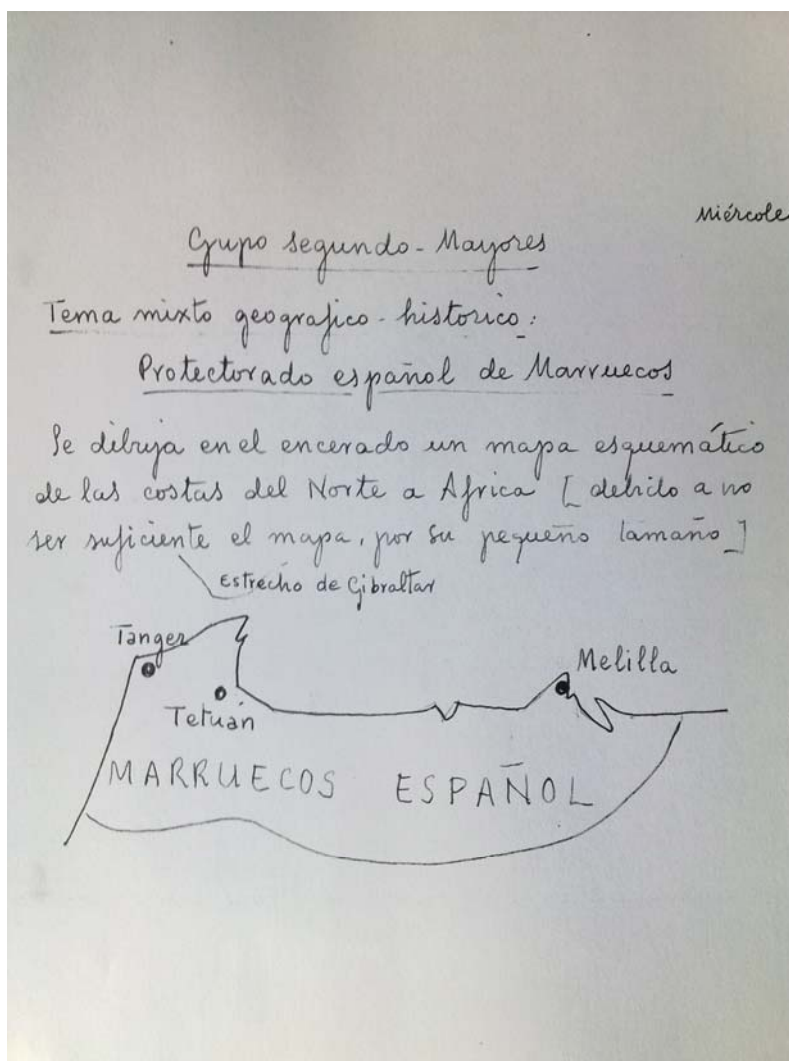 Miércole
Grupo segundo - Mayores
Tema mixto geografico - historico:
Protectorado español de Marruecos
Se dibuja en el encerado un mapa esquemático
de las costas del Norte a Africa [debido a no
ser suficiente el mapa, por su pequeño tamaño]
Estrecho de Gibraltar
Tanger
Melilla
Tetuán
MARRUECOS ESPAÑOL